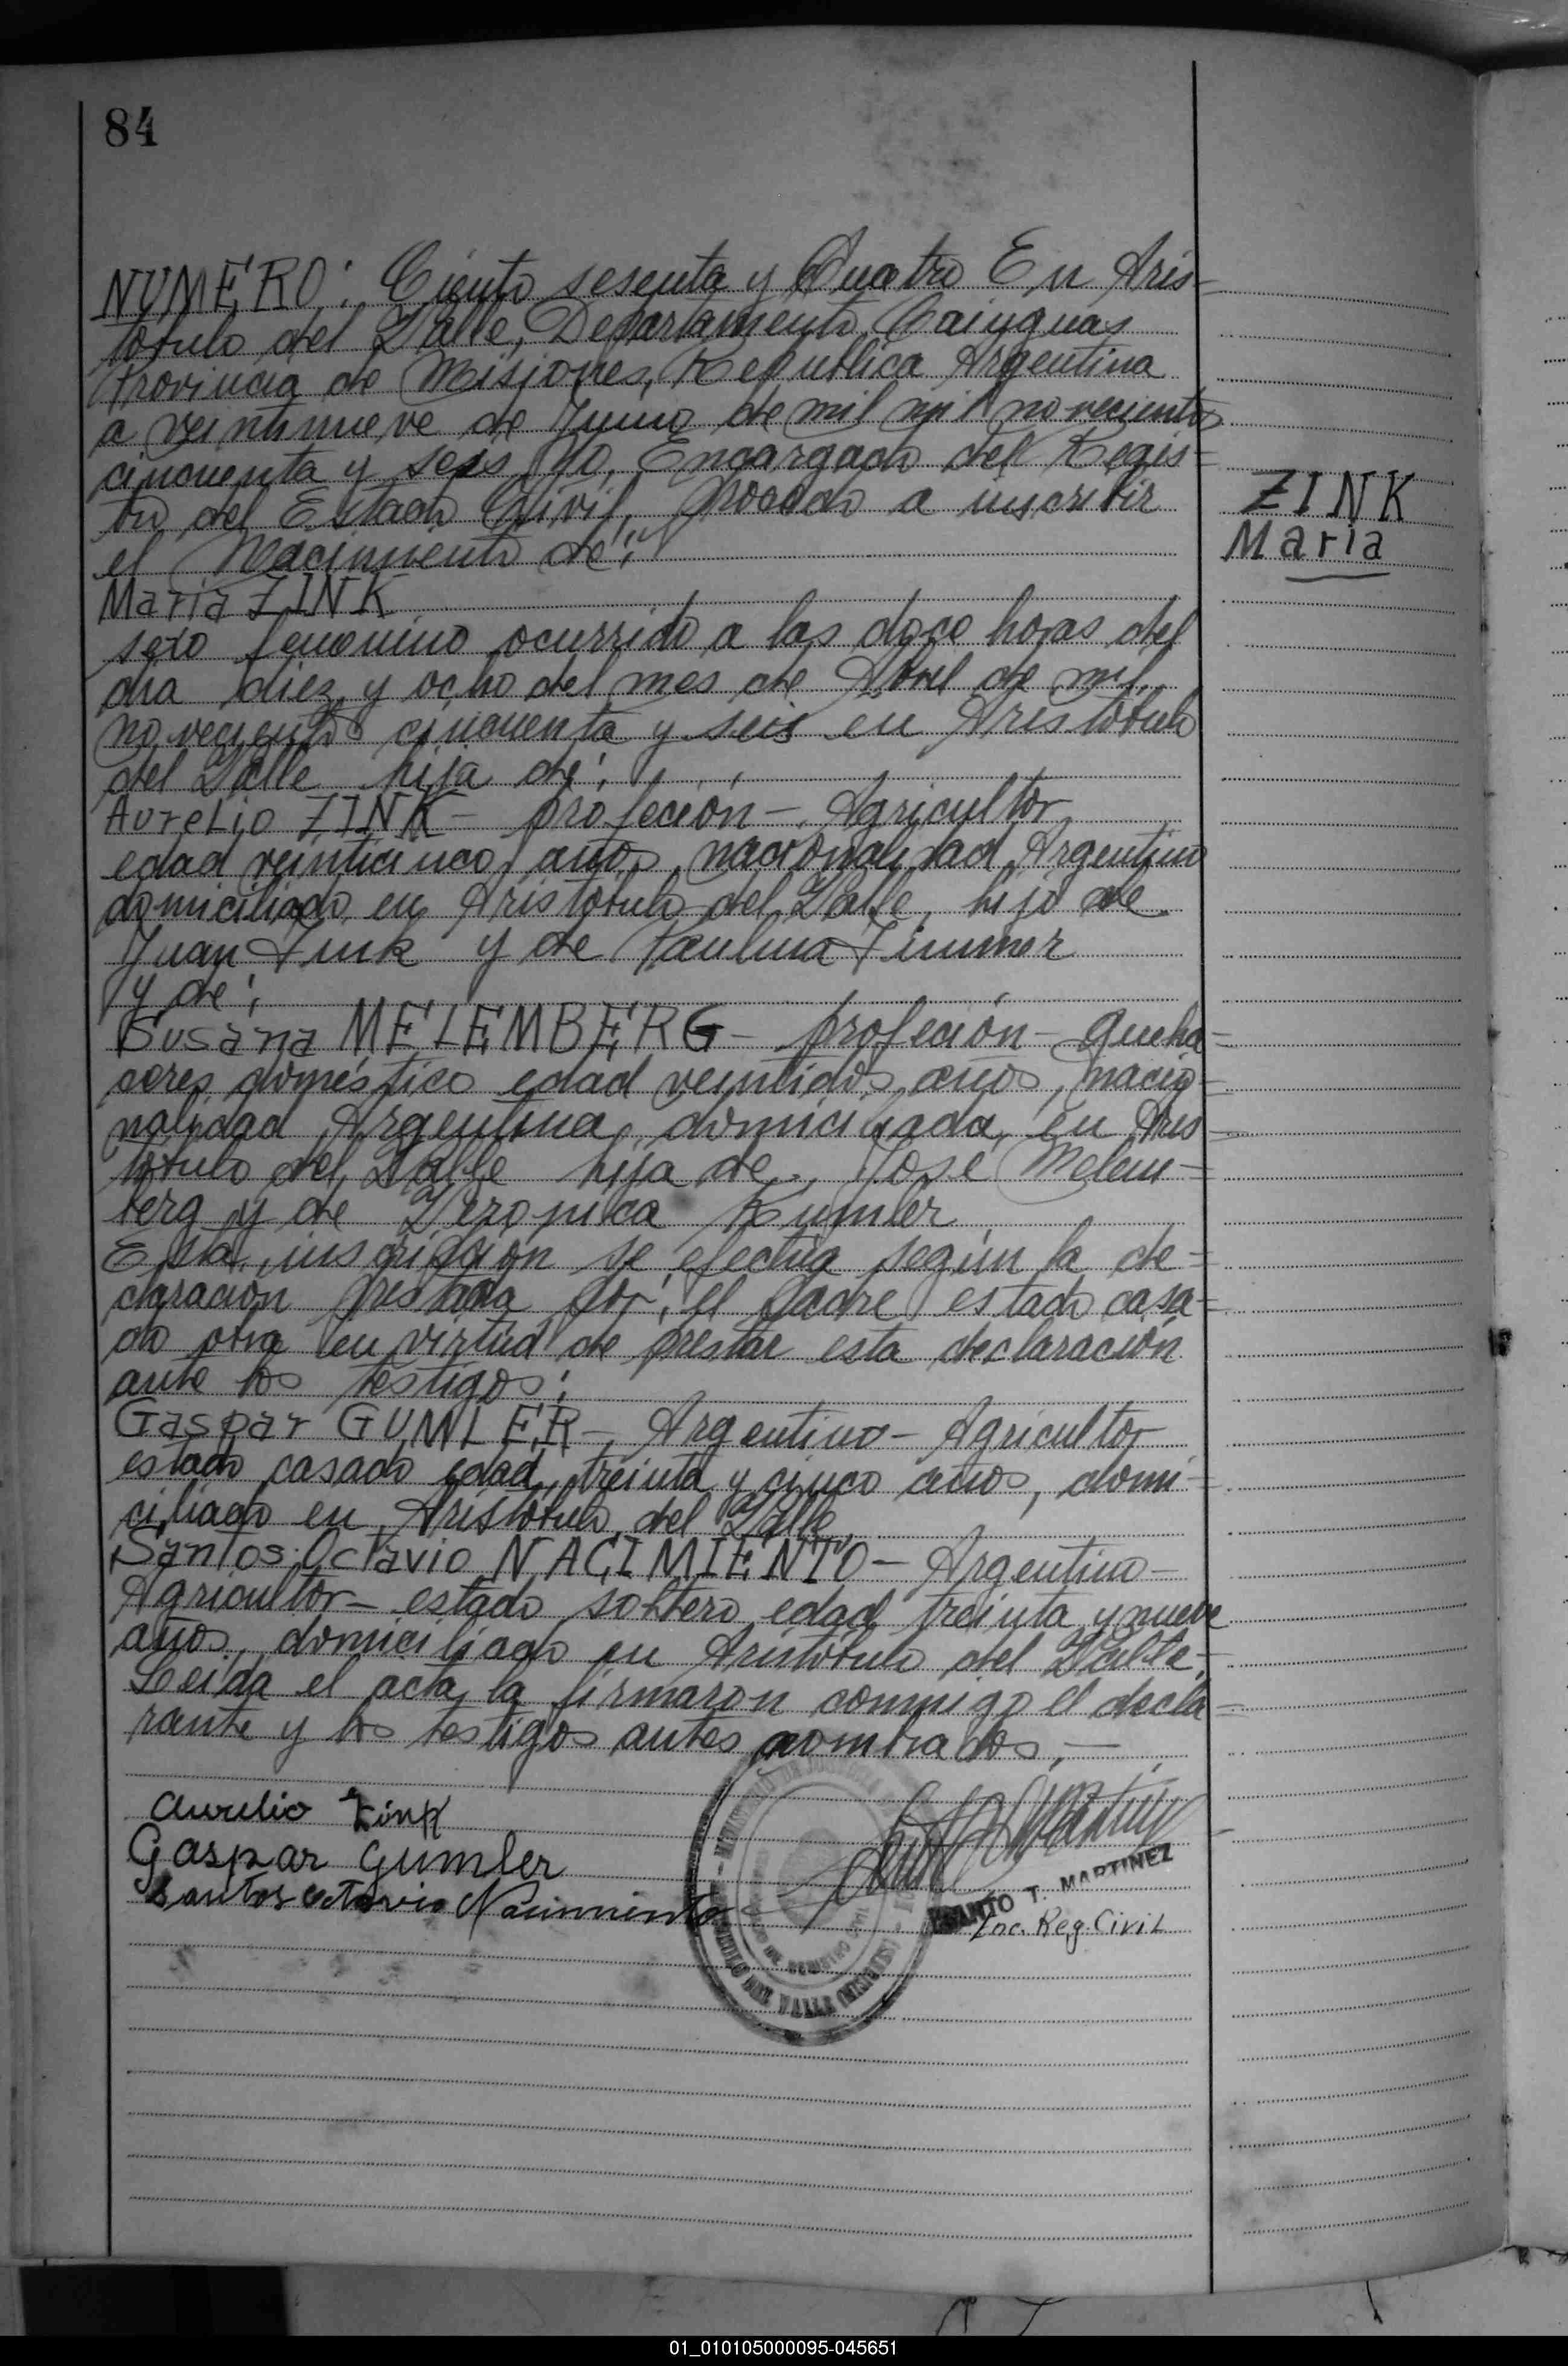 84
NUMERO: Ciento sesenta y Cuatro En Aris=
tobulo del Valle, Departamento Cainguas
Provincia de Misiones, Republica Argentina
a veintinueve de Junio de mil mil novecientos
cincuenta y seis yo, Encargado del Regis=
tro del Estado Civil, procedo a inscribir
el Nacimiento de:
ZINK
Maria
Maria ZINK
sexo femenino ocurrido a las doce horas del
dia diez y ocho del mes de Abril de mil
novecientos cincuenta y seis en Aristobulo
del Valle hija de:
Aurelio ZINK - profeción - Agricultor
edad veinticinco años, nacionalidad Argentino
domiciliado en Aristobulo del Valle, hijo de
Juan Zink y de Paulina Zimmer
y de:
Susana MELEMBERG - profeción - queha=
ceres doméstico edad veintidos años, nacio=
nalidad Argentina, domiciliada en Aris=
tobulo del Valle hija de José Melem=
berg y de Veronica Kumler
Esta inscripción se efectúa según la de=
claracion prestada por: el padre estado casa=
do obra en virtud de prestar esta declaración
ante los testigos:
Gaspar GUMLER - Argentino - Agricultor
estado casado edad, treinta y cinco años, domi=
ciliado en Aristobulo del Valle,
Santos Octavio NACIMIENTO - Argentino -
Agricultor - estado soltero edad treinta y nueve
años, domiciliado en Aristobulo del Valle.
Leida el acta la firmaron conmigo el decla=
rante y los testigos antes nombrados, -
Aurelio Zink
Gaspar Gumler
Santos Octavio Nacimiento
SANTO T. MARTINEZ
Enc. Reg. Civil
01_010105000095-045651